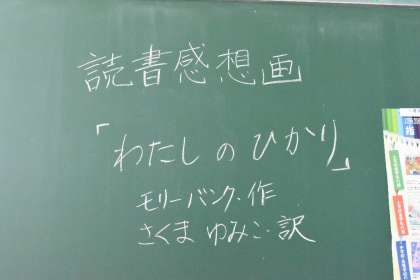 読書感想画
「わたしのひかり」
モリーバング・作
さくまゆみこ・訳